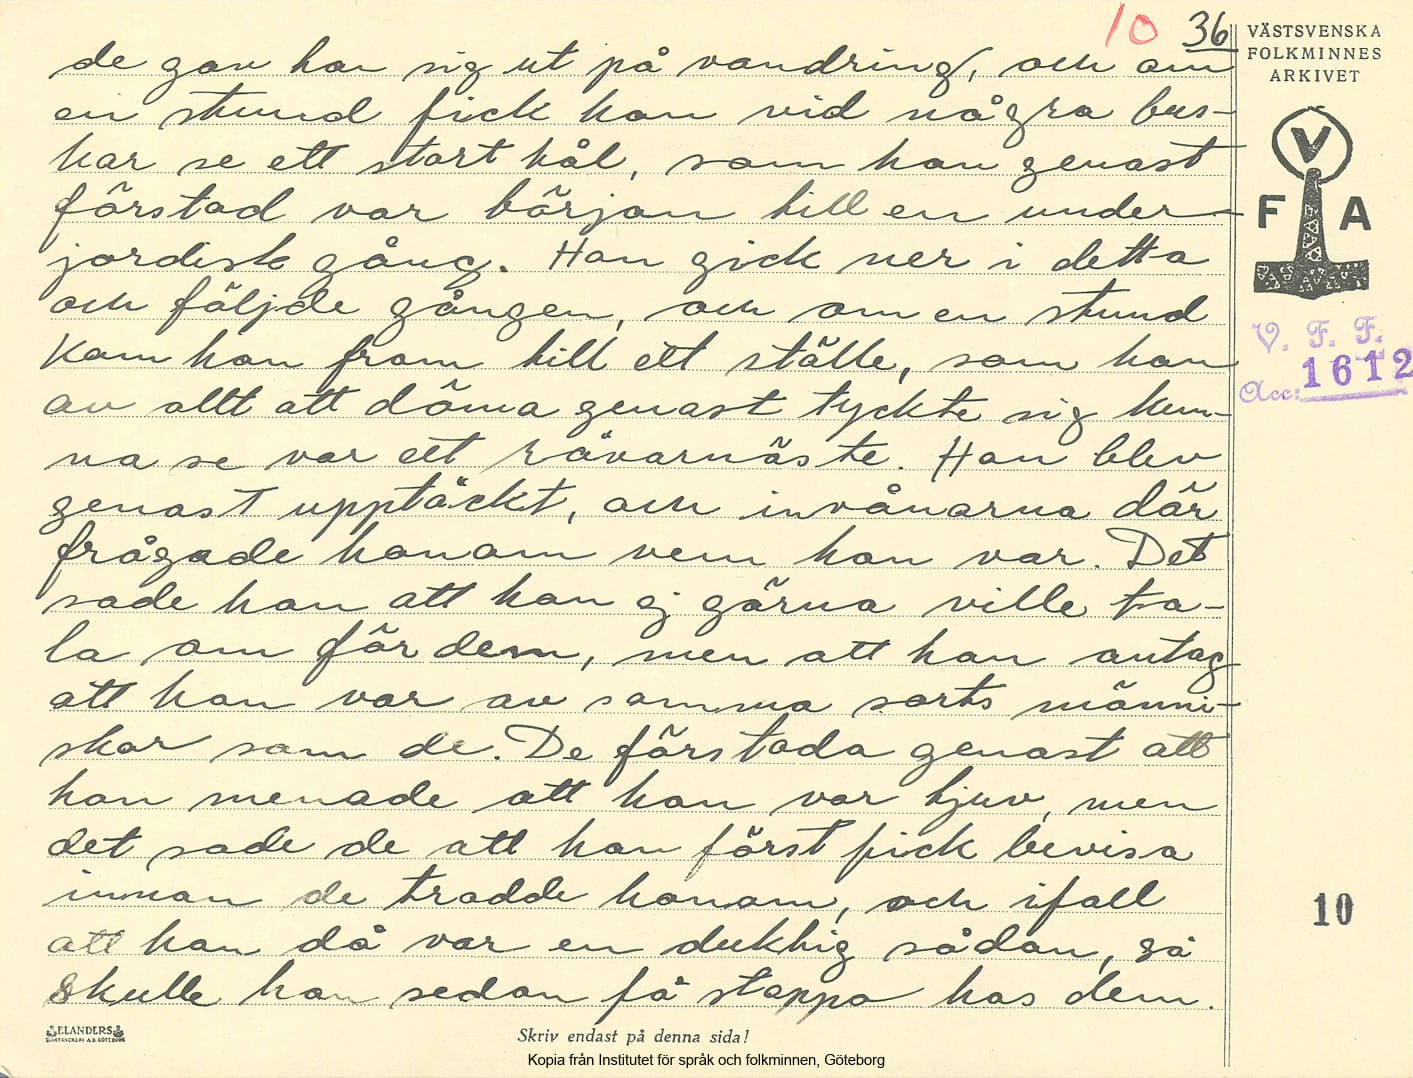 10 36
VÄSTSVENSKA
FOLKMINNES
ARKIVET
V
F A
V. F. F.
Acc: 1612
de gav han sig ut på vandring, och om
en stund fick han vid några bus-
kar se ett stort hål, som han genast
förstod var början till en under-
jordisk gång. Han gick ner i detta
och följde gången, och om en stund
kom han fram till ett ställe, som han
av allt att döma genast tyckte sig kun-
na se var ett rövarnäste. Han blev
genast upptäckt, och invånarna där
frågade honom vem han var. Det
sade han att han ej gärna ville ta-
la om för dem, men att han antog
att han var av samma sorts männi-
skor som de. De förstodo genast att
han menade att han var tjuv, men
det sade de att han först fick bevisa
innan de trodde honom, och ifall
att han då var en duktig sådan, så
skulle han sedan få stoppa hos dem.
10
ELANDERS
BOKTRYCKERI A.B. GÖTEBORG
Skriv endast på denna sida!
Kopia från Institutet för språk och folkminnen, Göteborg